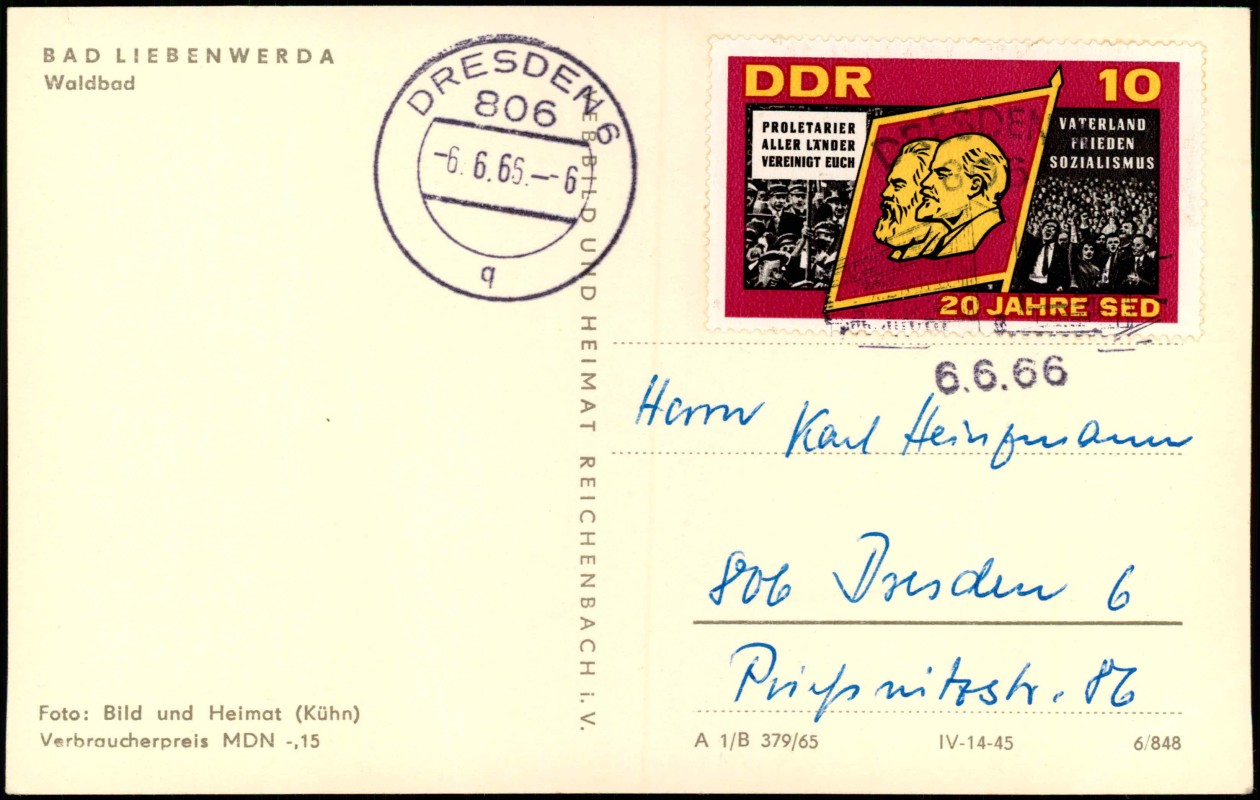 BAD LIEBENWERDA
Waldbad
DRESDEN 6
806
-6.6.66.--6
q
DDR 10
PROLETARIER
ALLER LÄNDER
VEREINIGT EUCH
VATERLAND
FRIEDEN
SOZIALISMUS
20 JAHRE SED
DRESDEN
806
6.6.66
BILD UND HEIMAT REICHENBACH i. V.
Herrn Karl Heinzmann
806 Dresden 6
Prießnitzstr. 86
Foto: Bild und Heimat (Kühn)
Verbraucherpreis MDN -,15
A 1/B 379/65 IV-14-45 6/848